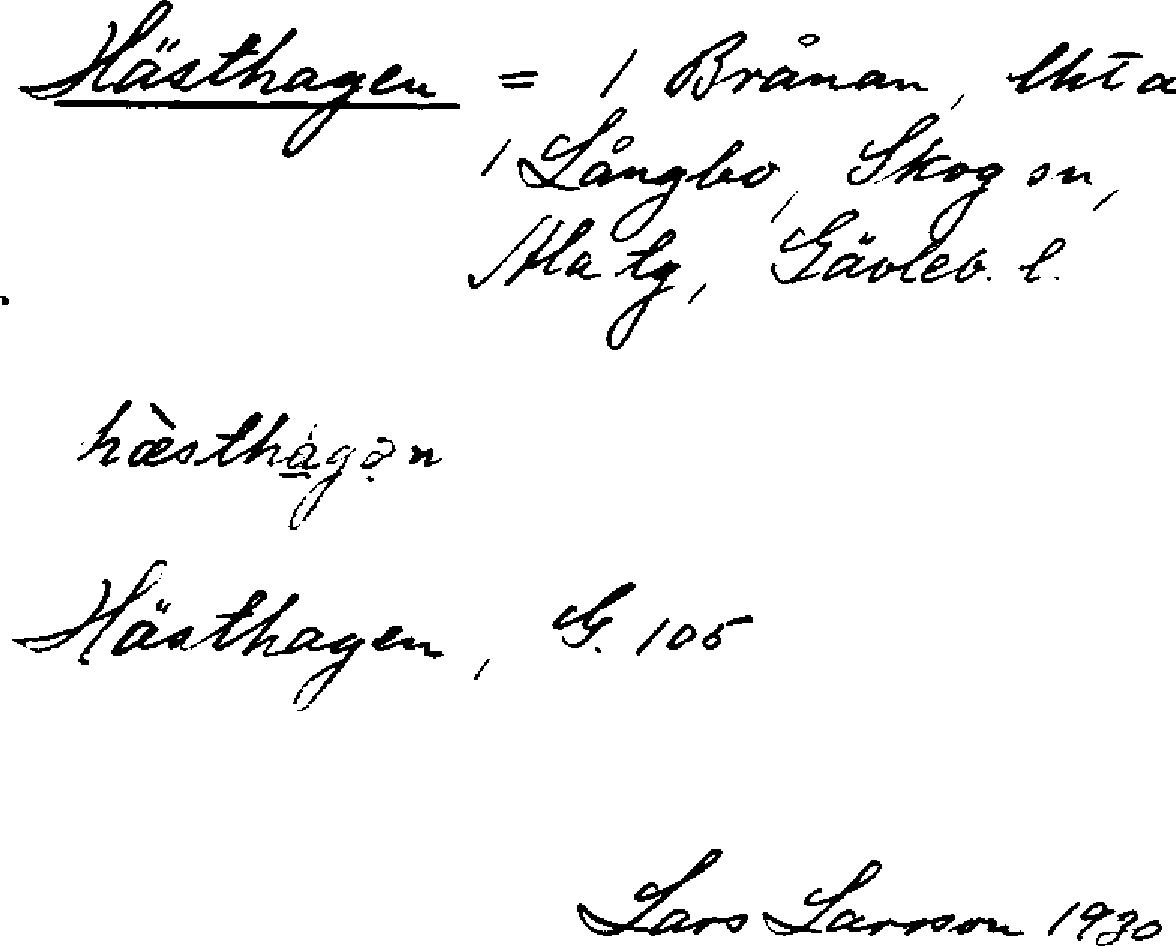 Hästhagen = 1 Brånan, lht a
1 Långbo, Skog sn,
Ala tg, Gävleb. l.
hæ̀sthàgən
Hästhagen, G. 105
Lars Larsson 1930